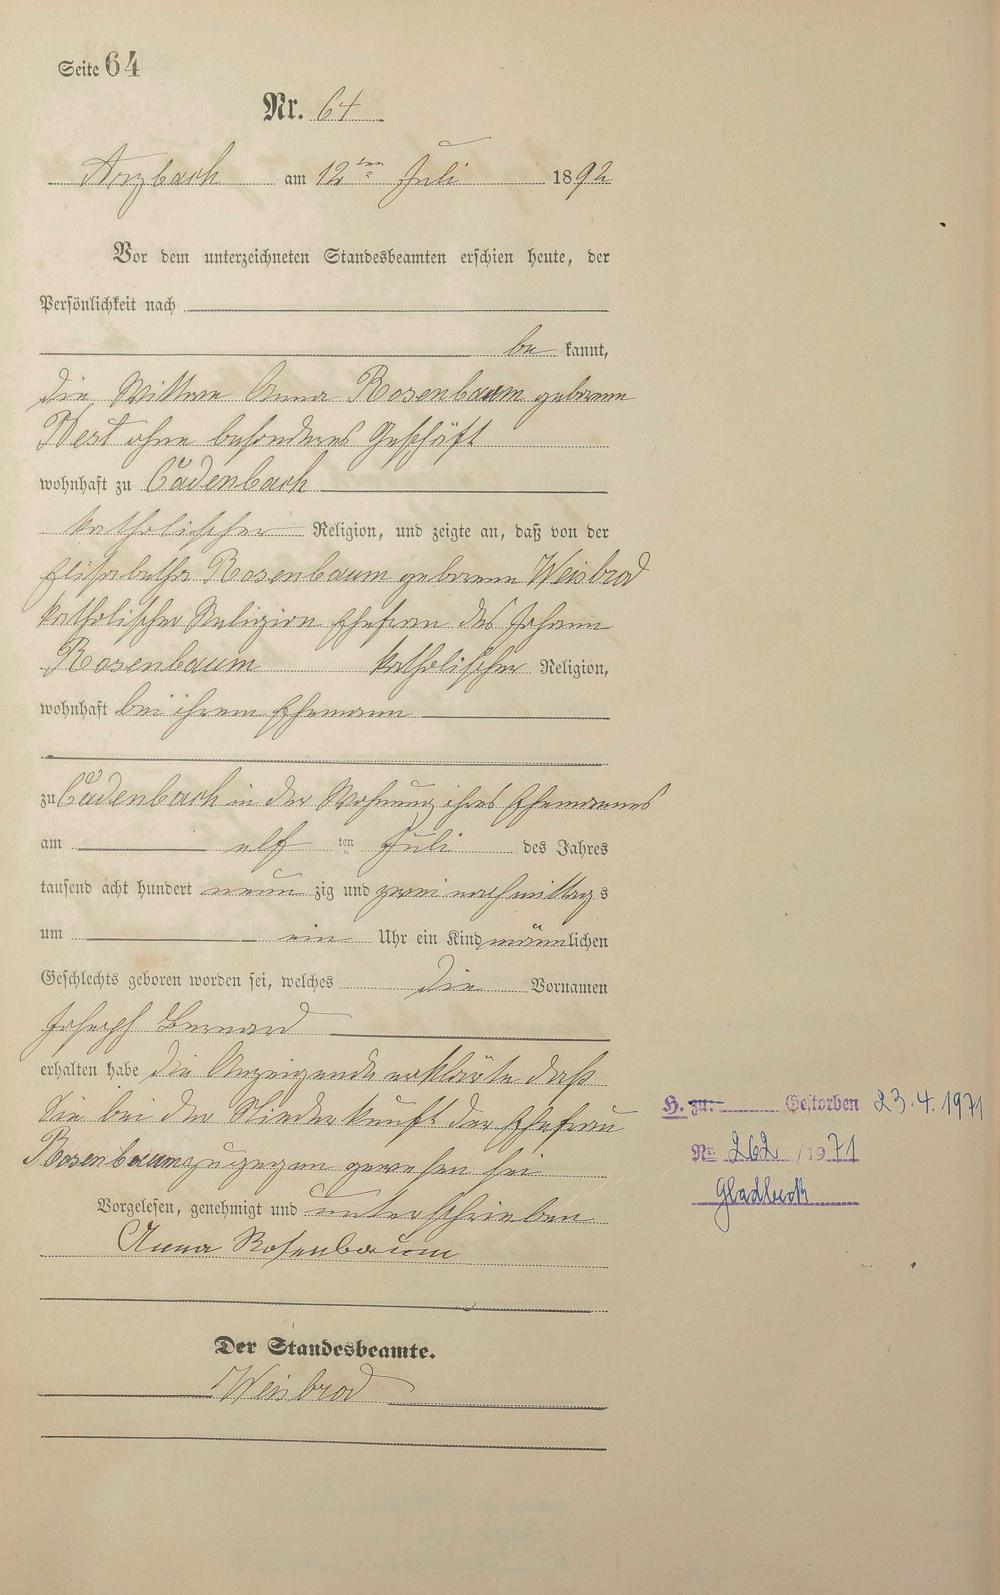 Seite 64
Nr. 64
Arzbach am 12ten Juli 1892
Vor dem unterzeichneten Standesbeamten erschien heute, der
Persönlichkeit nach
be kannt,
die Wittwe Anna Rosenbaum geborene
Best ohne besonderes Geschäft
wohnhaft zu Cadenbach
katholischer Religion, und zeigte an, daß von der
Elisabetha Rosenbaum geborene Weisbrod
katholischer Religion Ehefrau des Johann
Rosenbaum katholischer Religion,
wohnhaft bei ihrem Ehemann
zu Cadenbach in der Wohnung ihres Ehemannes
am elf ten Juli des Jahres
tausend acht hundert neun zig und zwei nachmittags
um ein Uhr ein Kind männlichen
Geschlechts geboren worden sei, welches die Vornamen
Joseph Bernard
erhalten habe die Anzeigende erklärte daß
Sie bei der Niederkunft der Ehefrau
Rosenbaum zugegen gewesen sei
Vorgelesen, genehmigt und unterschrieben
Anna Rosenbaum
Der Standesbeamte.
Weisbrod
H. zu: Gestorben 23.4.1971
Nr. 262 /1971
Gladbeck